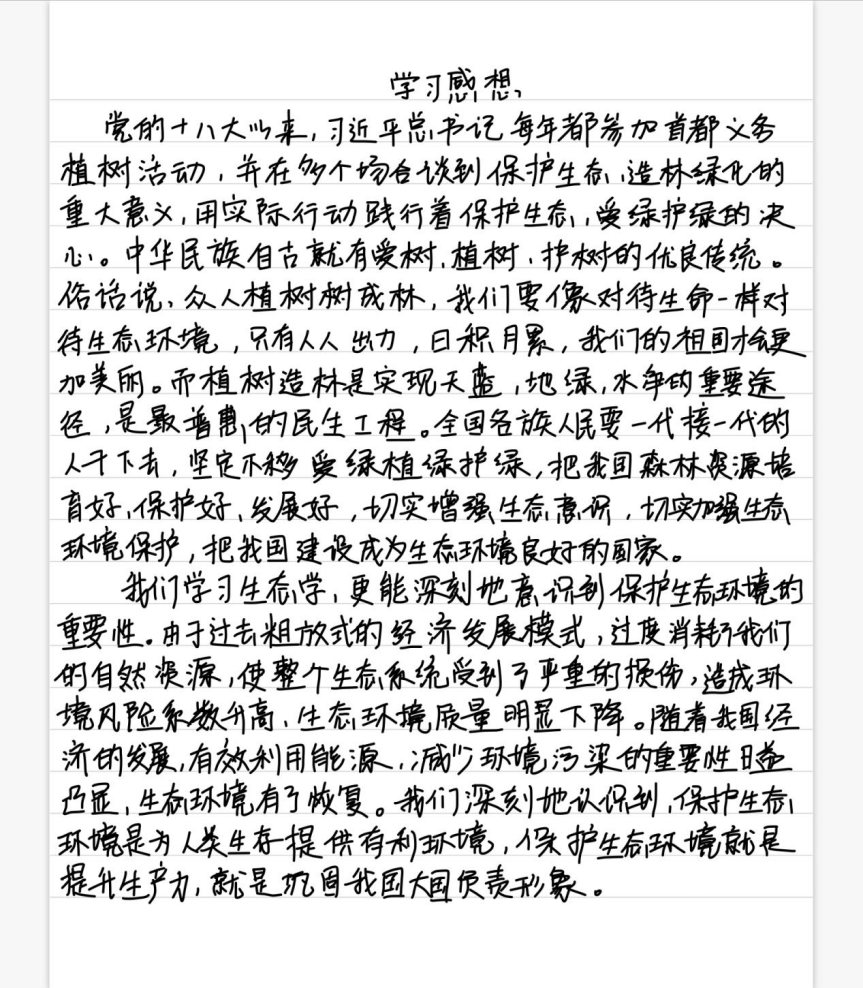 学习感想
党的十八大以来,习近平总书记每年都参加首都义务
植树活动,并在多个场合谈到保护生态、造林绿化的
重大意义,用实际行动践行着保护生态,爱绿护绿的决
心。中华民族自古就有爱树、植树、护树的优良传统。
俗话说,众人植树树成林,我们要像对待生命一样对
待生态环境,只有人人出力,日积月累,我们的祖国才会更
加美丽。而植树造林是实现天蓝,地绿,水净的重要途
径,是最普惠的民生工程。全国各族人民要一代接一代的
人干下去,坚定不移爱绿植绿护绿,把我国森林资源培
育好、保护好、发展好,切实增强生态意识,切实加强生态
环境保护,把我国建设成为生态环境良好的国家。
我们学习生态学,更能深刻地意识到保护生态环境的
重要性。由于过去粗放式的经济发展模式,过度消耗了我们
的自然资源,使整个生态系统受到了严重的损伤,造成环
境风险系数升高、生态环境质量明显下降。随着我国经
济的发展,有效利用能源,减少环境污染的重要性日益
凸显,生态环境有了恢复。我们深刻地认识到,保护生态
环境是为人类生存提供有利环境,保护生态环境就是
提升生产力,就是巩固我国大国负责形象。